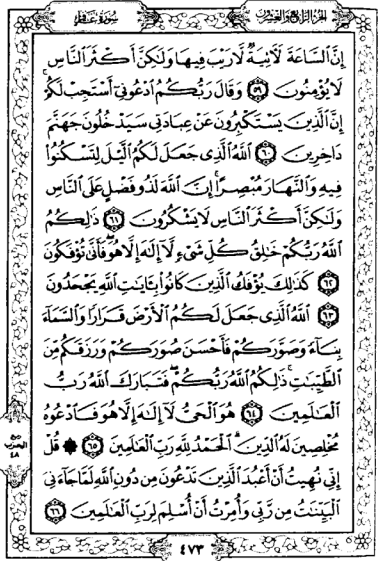 الجزء الرابع والعشرون
سورة غافر
إِنَّ ٱلسَّاعَةَ لَأٓتِيَةٌ لَّا رَيْبَ فِيهَا وَلَٰكِنَّ أَكْثَرَ ٱلنَّاسِ
لَا يُؤْمِنُونَ ٥٩ وَقَالَ رَبُّكُمُ ٱدْعُونِىٓ أَسْتَجِبْ لَكُمْ
إِنَّ ٱلَّذِينَ يَسْتَكْبِرُونَ عَنْ عِبَادَتِى سَيَدْخُلُونَ جَهَنَّمَ
دَاخِرِينَ ٦٠ ٱللَّهُ ٱلَّذِى جَعَلَ لَكُمُ ٱلَّيْلَ لِتَسْكُنُوا۟
فِيهِ وَٱلنَّهَارَ مُبْصِرًا ۚ إِنَّ ٱللَّهَ لَذُو فَضْلٍ عَلَى ٱلنَّاسِ
وَلَٰكِنَّ أَكْثَرَ ٱلنَّاسِ لَا يَشْكُرُونَ ٦١ ذَٰلِكُمُ
ٱللَّهُ رَبُّكُمْ خَٰلِقُ كُلِّ شَىْءٍ لَّآ إِلَٰهَ إِلَّا هُوَ ۖ فَأَنَّىٰ تُؤْفَكُونَ
٦٢ كَذَٰلِكَ يُؤْفَكُ ٱلَّذِينَ كَانُوا۟ بِـَٔايَٰتِ ٱللَّهِ يَجْحَدُونَ
٦٣ ٱللَّهُ ٱلَّذِى جَعَلَ لَكُمُ ٱلْأَرْضَ قَرَارًا وَٱلسَّمَآءَ
بِنَآءً وَصَوَّرَكُمْ فَأَحْسَنَ صُوَرَكُمْ وَرَزَقَكُم مِّنَ
ٱلطَّيِّبَٰتِ ۚ ذَٰلِكُمُ ٱللَّهُ رَبُّكُمْ ۖ فَتَبَارَكَ ٱللَّهُ رَبُّ
ٱلْعَٰلَمِينَ ٦٤ هُوَ ٱلْحَىُّ لَآ إِلَٰهَ إِلَّا هُوَ فَٱدْعُوهُ
مُخْلِصِينَ لَهُ ٱلدِّينَ ۗ ٱلْحَمْدُ لِلَّهِ رَبِّ ٱلْعَٰلَمِينَ ٦٥ ۞ قُلْ
إِنِّى نُهِيتُ أَنْ أَعْبُدَ ٱلَّذِينَ تَدْعُونَ مِن دُونِ ٱللَّهِ لَمَّا جَآءَنِىَ
ٱلْبَيِّنَٰتُ مِن رَّبِّى وَأُمِرْتُ أَنْ أُسْلِمَ لِرَبِّ ٱلْعَٰلَمِينَ ٦٦
الحزب
٤٨
٤٧٣